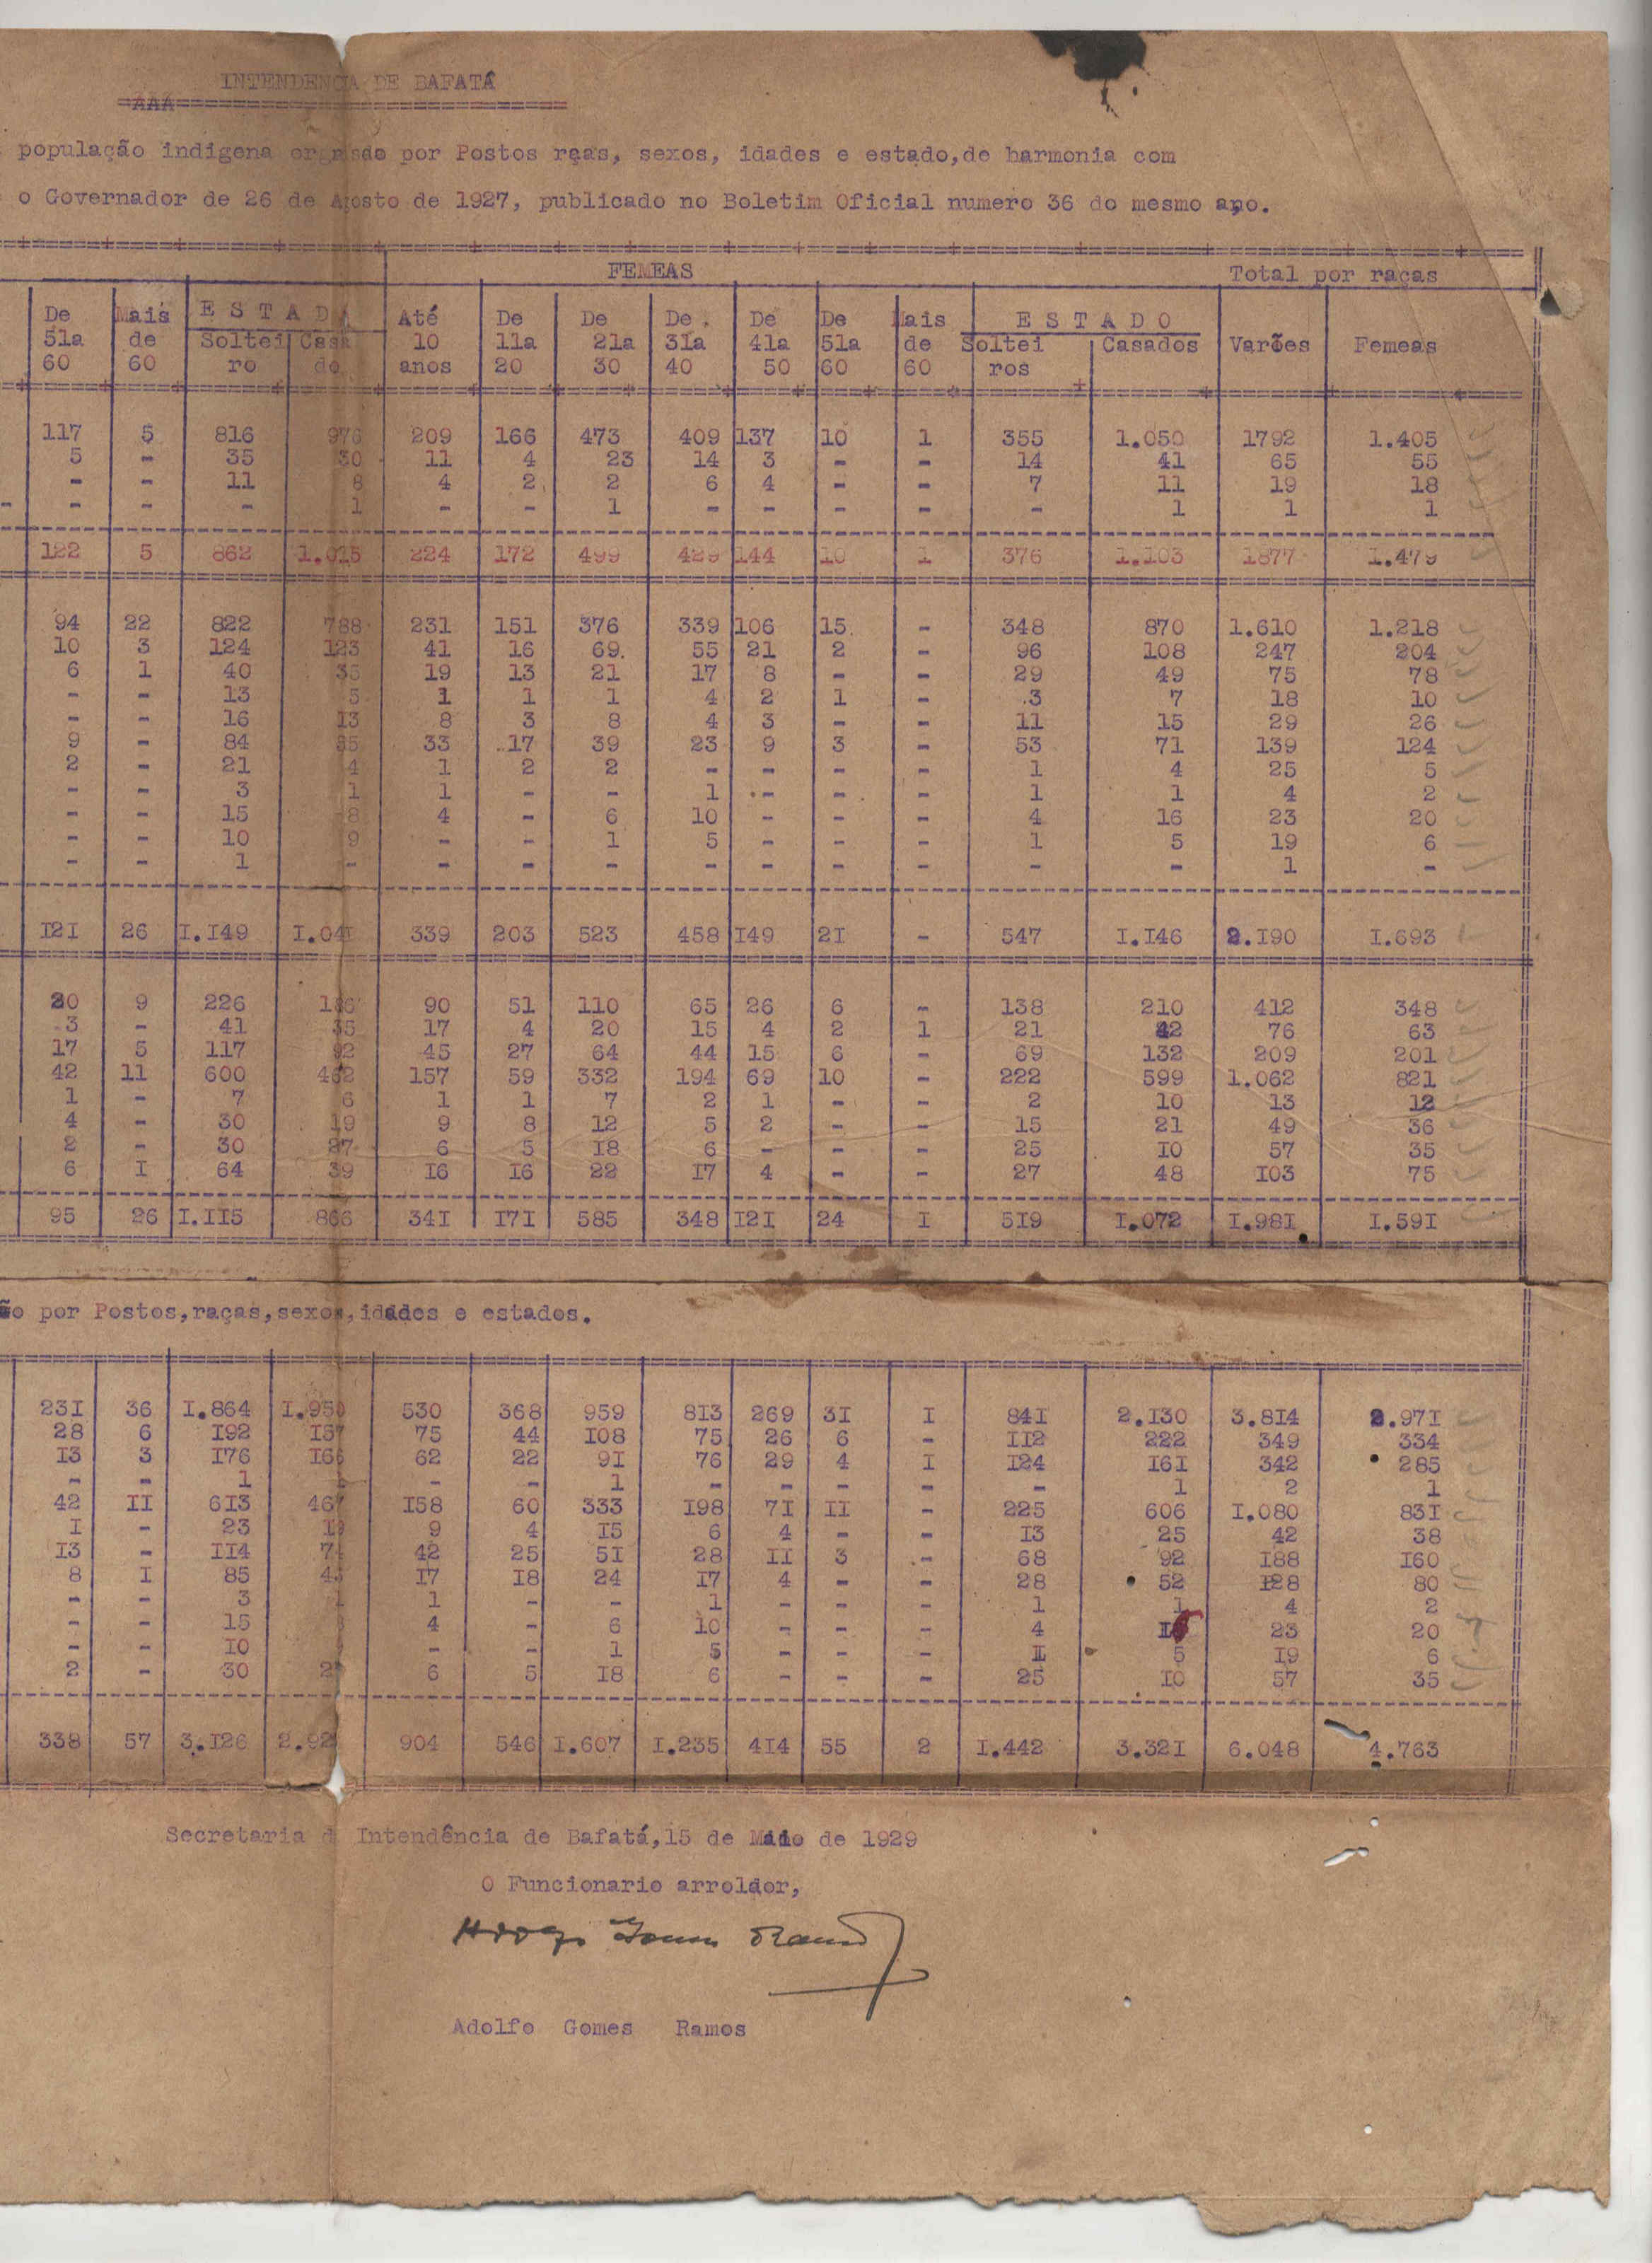 INTENDENCIA DE BAFATÁ
=AAA=
população indigena por Postos rças, sexos, idades e estado,de harmonia com
o Governador de 26 de Agosto de 1927, publicado no Boletim Oficial numero 36 do mesmo ano.
FEMEAS Total por raças
De Mais E S T A D Até De De De De De Mais E S T A D O
51a de Soltei Casa 10 11a 21a 31a 41a 51a de Soltei Casados Varões Femeas
60 60 ro do anos 20 30 40 50 60 60 ros
117 5 816 976 209 166 473 409 137 10 1 355 1.050 1792 1.405
5 - 35 30 11 4 23 14 3 - - 14 41 65 55
- - 11 8 4 2 2 6 4 - - 7 11 19 18
- - - - 1 - - 1 - - - - - 1 1 1
122 5 862 1.015 224 172 499 429 144 10 1 376 1.103 1877 1.479
94 22 822 788 231 151 376 339 106 15 - 348 870 1.610 1.218
10 3 124 123 41 16 69. 55 21 2 - 96 108 247 204
6 1 40 35 19 13 21 17 8 - - 29 49 75 78
- - 13 5 1 1 1 4 2 1 - 3 7 18 10
- - 16 13 8 3 8 4 3 - - 11 15 29 26
9 - 84 33 17 39 23 9 3 - 53 71 139 124
2 - 21 4 1 2 2 - - - - 1 4 25 5
- - 3 1 1 - - 1 - - - 1 1 4 2
- - 15 8 4 - 6 10 - - - 4 16 23 20
- - 10 9 - - 1 5 - - - 1 5 19 6
- - 1 - - - - - - - - - - 1 -
121 26 1.149 1.041 339 203 523 458 149 21 - 547 1.146 2.190 1.693
20 9 226 186 90 51 110 65 26 6 - 138 210 412 348
3 - 41 35 17 4 20 15 4 2 1 21 42 76 63
17 5 117 92 45 27 64 44 15 6 - 69 132 209 201
42 11 600 462 157 59 332 194 69 10 - 222 599 1.062 821
1 - 7 6 1 1 7 2 1 - - 2 10 13 12
4 - 30 19 9 8 12 5 2 - - 15 21 49 36
2 - 30 27 6 5 18 6 - - - 25 10 57 35
6 1 64 39 16 16 22 17 4 - - 27 48 103 75
95 26 1.115 866 341 171 585 348 121 24 1 519 1.072 1.981 1.591
ão por Postos,raças,sexos,idades e estados.
231 36 1.864 1.950 530 368 959 813 269 31 1 841 2.130 3.814 2.971
28 6 192 157 75 44 108 75 26 6 - 112 222 349 334
13 3 176 166 62 22 91 76 29 4 1 124 161 342 285
- - 1 - - 1 - - - - - 1 2 1
42 11 613 467 158 60 333 198 71 11 - 225 606 1.080 831
1 - 23 19 9 4 15 6 4 - - 13 25 42 38
13 - 114 74 42 25 51 28 11 3 - 68 92 188 160
8 1 85 43 17 18 24 17 4 - - 28 52 128 80
- - 3 1 1 - - 1 - - - 1 1 4 2
- - 15 4 - 6 10 - - - 4 16 23 20
- - 10 - - 1 5 - - - 1 5 19 6
2 - 30 27 6 5 18 6 - - - 25 10 57 35
338 57 3.126 2.92 904 546 1.607 1.235 414 55 2 1.442 3.321 6.048 4.763
Secretaria d Intendência de Bafatá,15 de Maio de 1929
O Funcionario arrolador,
Adolfo Gomes Ramos